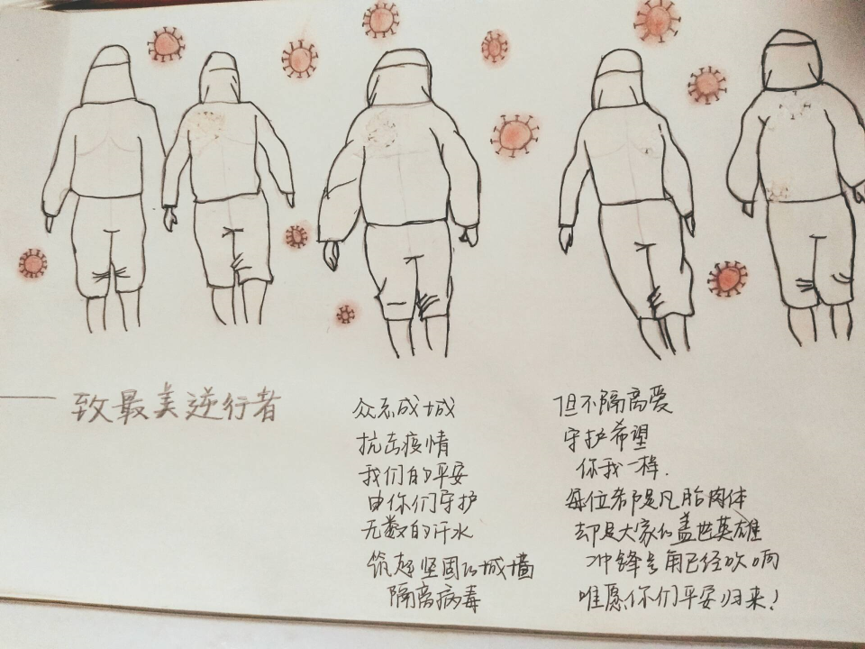 致最美逆行者
众志成城
抗击疫情
我们的平安
由你们守护
无数的汗水
筑起坚固的城墙
隔离病毒
但不隔离爱
守护希望
你我一样.
每位都是凡胎肉体
却是大家的盖世英雄
冲锋号角已经吹响
唯愿你们平安归来!